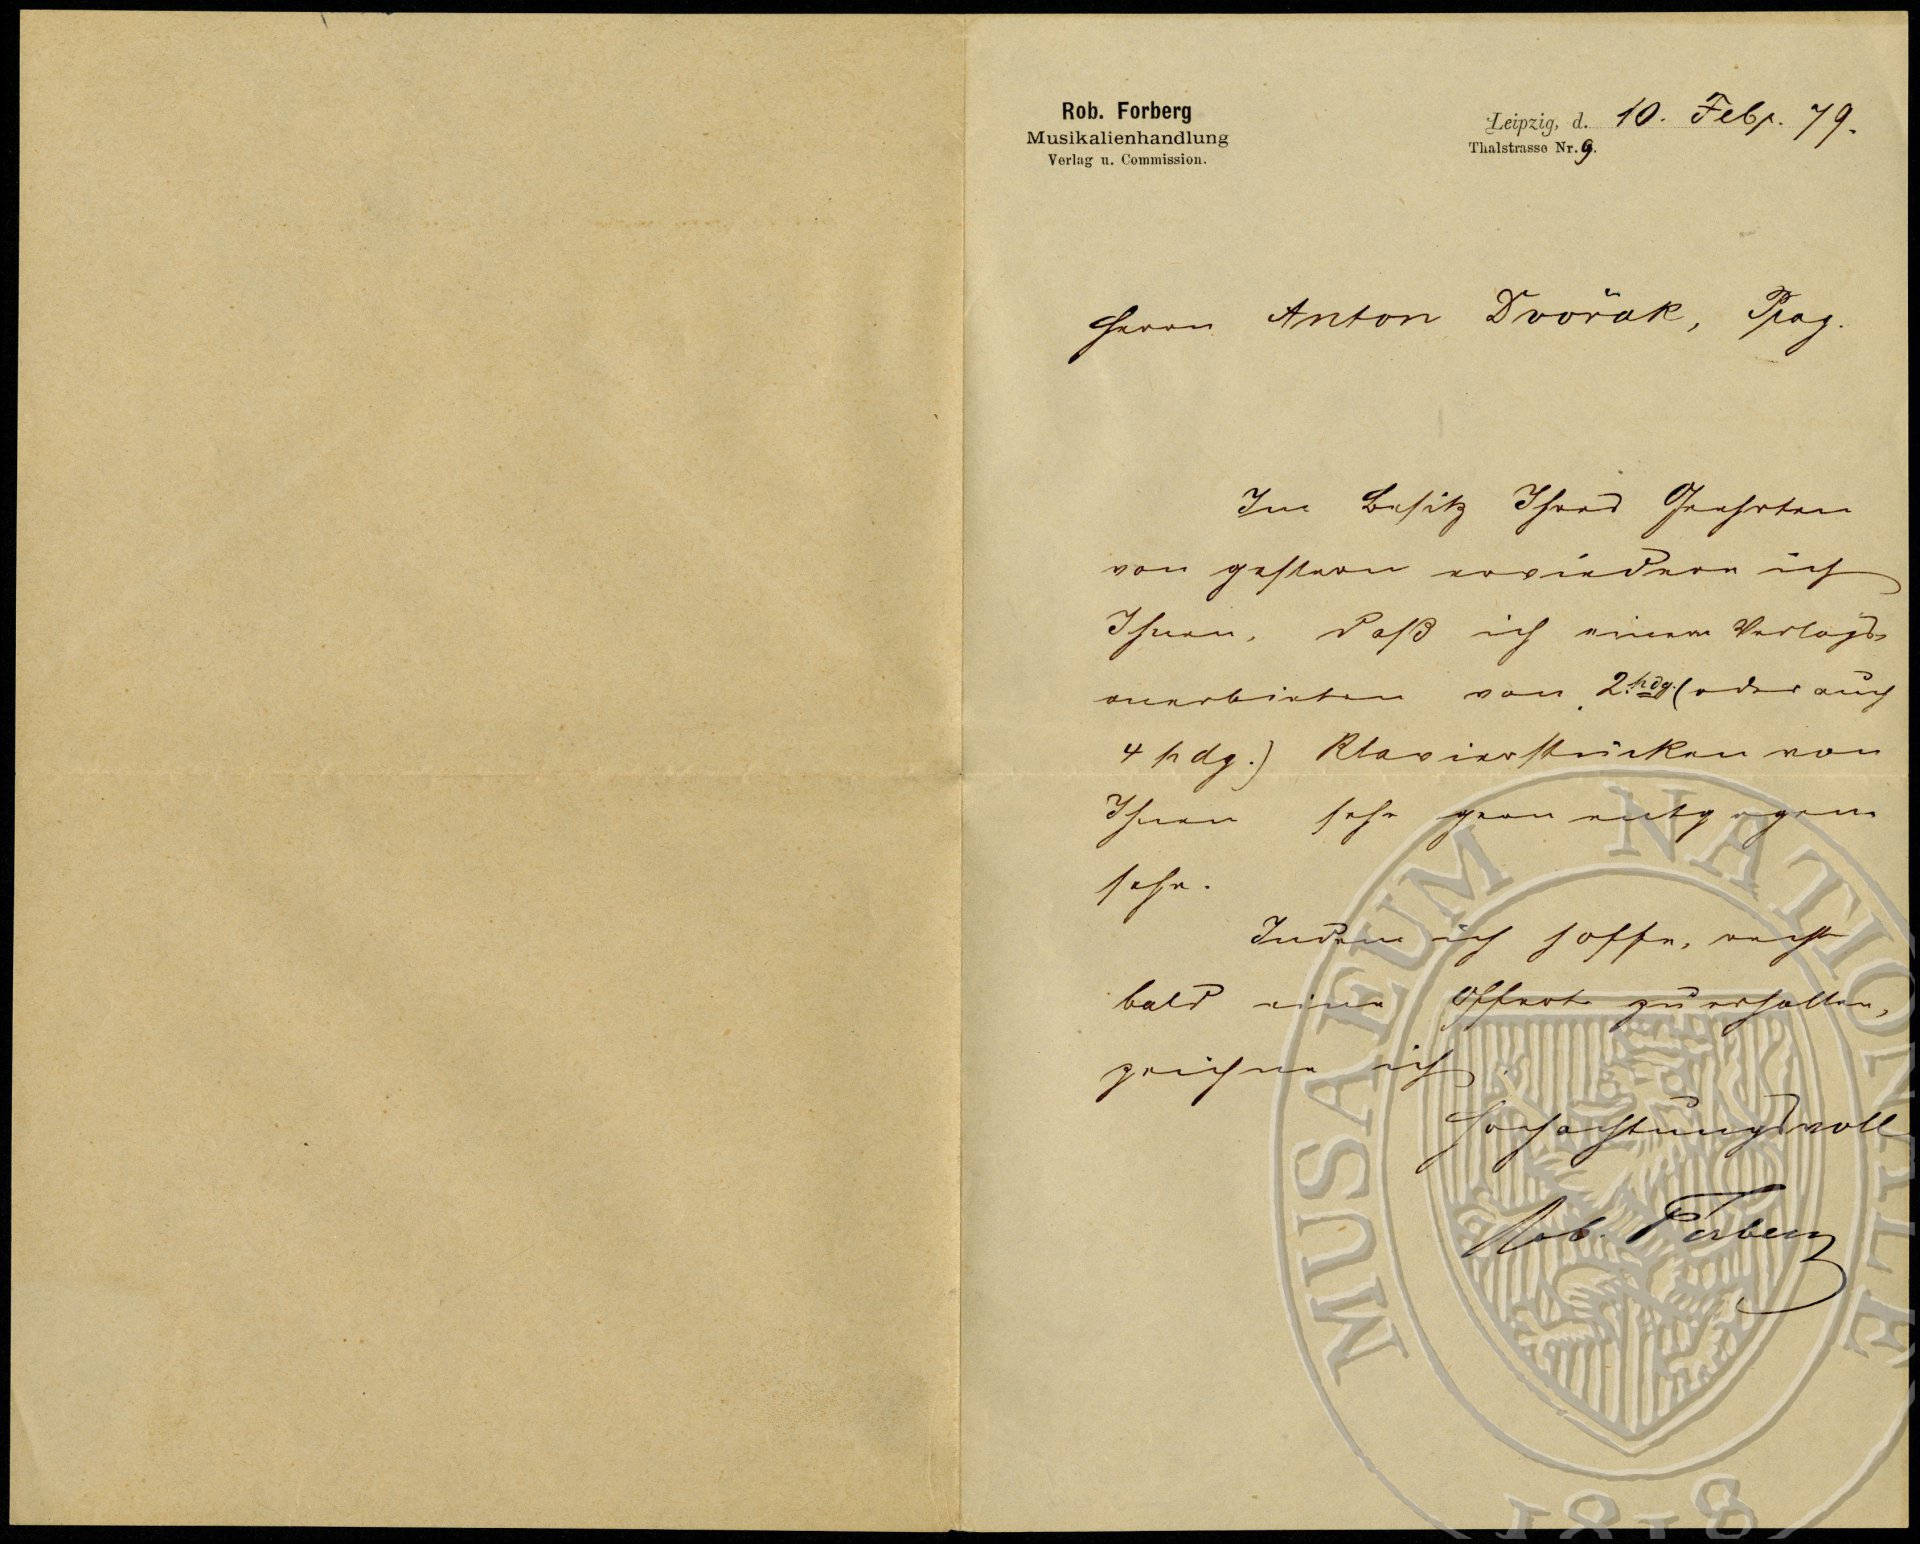 Rob. Forberg
Musikalienhandlung
Verlag u. Commission.
Leipzig, d. 10. Febr. 79.
Thalstrasse Nr. 9.
Herrn Anton Dvořak, Prag.
Im Besitz Ihres Geehrten
von gestern erwiedere ich
Ihnen, daß ich einem Verlags-
anerbieten von 2hdg. (oder auch
4 hdg.) Klavierstücken von
Ihnen sehr gern entgegen
sehe.
Indem ich hoffe, recht
bald eine Offerte zu erhalten,
zeichne ich
Hochachtungsvoll
Rob. Forberg
MUSAEUM NATIONALE
1818